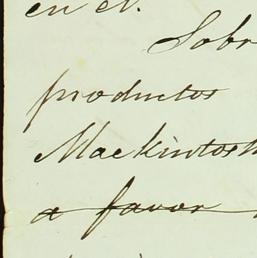 en el.
Sobr
productos
Mackintosh
a favor